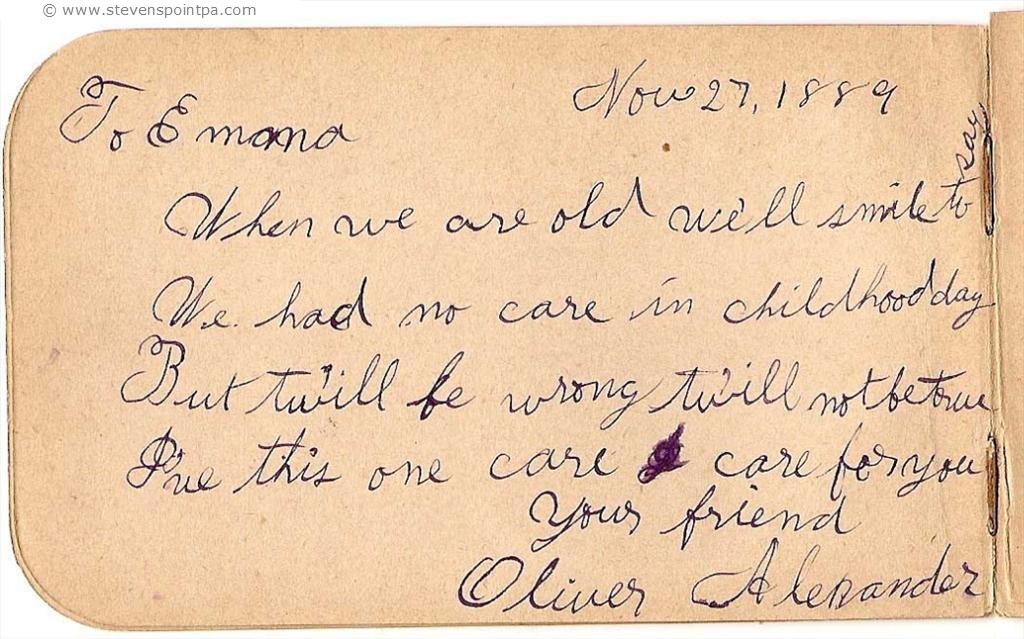 © www.stevenspointpa.com
Nov 27, 1889
To Emana
When we are old we'll smile to say
We had no care in childhood day
But twi'll be wrong twi'll not be true
I've this one care I care for you
Your friend
Oliver Alexander